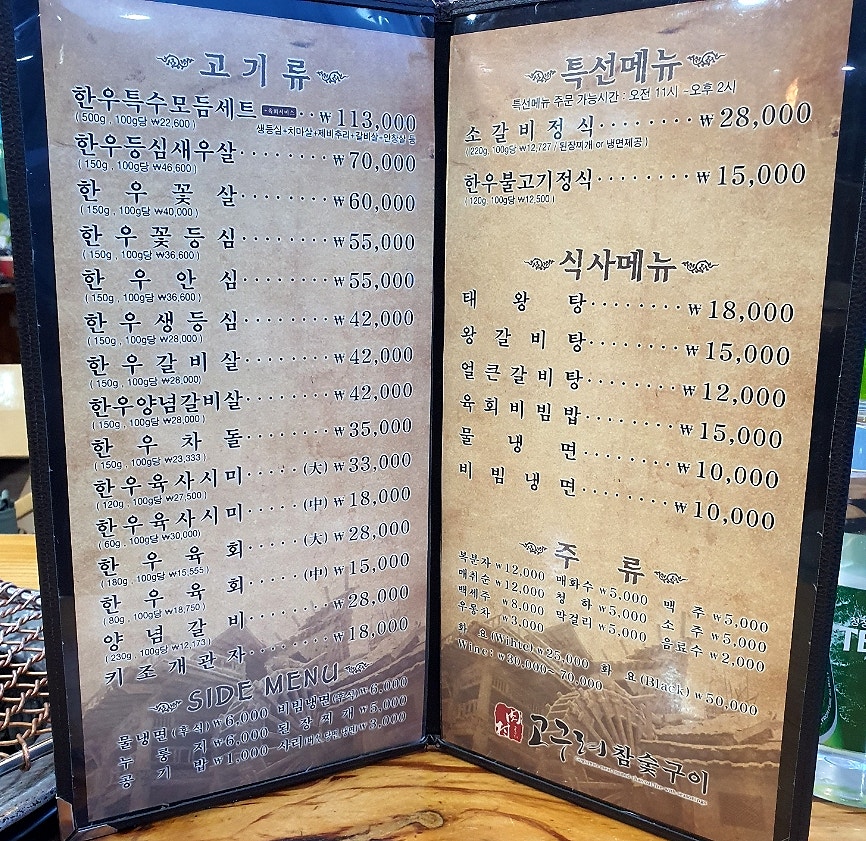 고기류
한우특수모듬세트 -육회서비스- ₩113,000
(500g, 100g당 ₩22,600) 생등심+치마살+제비추리+갈비살+안창살 등
한우등심새우살 ₩70,000
(150g, 100g당 ₩46,600)
한우꽃살 ₩60,000
(150g, 100g당 ₩40,000)
한우꽃등심 ₩55,000
(150g, 100g당 ₩36,600)
한우안심 ₩55,000
(150g, 100g당 ₩36,600)
한우생등심 ₩42,000
(150g, 100g당 ₩28,000)
한우갈비살 ₩42,000
(150g, 100g당 ₩28,000)
한우양념갈비살 ₩42,000
(150g, 100g당 ₩28,000)
한우차돌 ₩35,000
(150g, 100g당 ₩23,333)
한우육사시미 (大) ₩33,000
(120g, 100g당 ₩27,500)
한우육사시미 (中) ₩18,000
(60g, 100g당 ₩30,000)
한우육회 (大) ₩28,000
(180g, 100g당 ₩15,555)
한우육회 (中) ₩15,000
(80g, 100g당 ₩18,750)
양념갈비 ₩28,000
(230g, 100g당 ₩12,173)
키조개관자 ₩18,000
SIDE MENU
물냉면(후식) ₩6,000 비빔냉면(후식) ₩6,000
누룽지 ₩6,000 된장찌개 ₩5,000
공기밥 ₩1,000 사리 ₩3,000
특선메뉴
특선메뉴 주문 가능시간 : 오전 11시 ~오후 2시
소갈비정식 ₩28,000
(220g, 100g당 ₩12,727 / 된장찌개 or 냉면제공)
한우불고기정식 ₩15,000
(120g, 100g당 ₩12,500)
식사메뉴
태왕탕 ₩18,000
왕갈비탕 ₩15,000
얼큰갈비탕 ₩12,000
육회비빔밥 ₩15,000
물냉면 ₩10,000
비빔냉면 ₩10,000
주류
복분자 ₩12,000 매화수 ₩5,000 맥주 ₩5,000
매취순 ₩12,000 청하 ₩5,000 소주 ₩5,000
백세주 ₩8,000 막걸리 ₩5,000 음료수 ₩2,000
우롱차 ₩3,000
화요(White) ₩25,000 화요(Black) ₩50,000
Wine: ₩30,000~70,000
고구려참숯구이